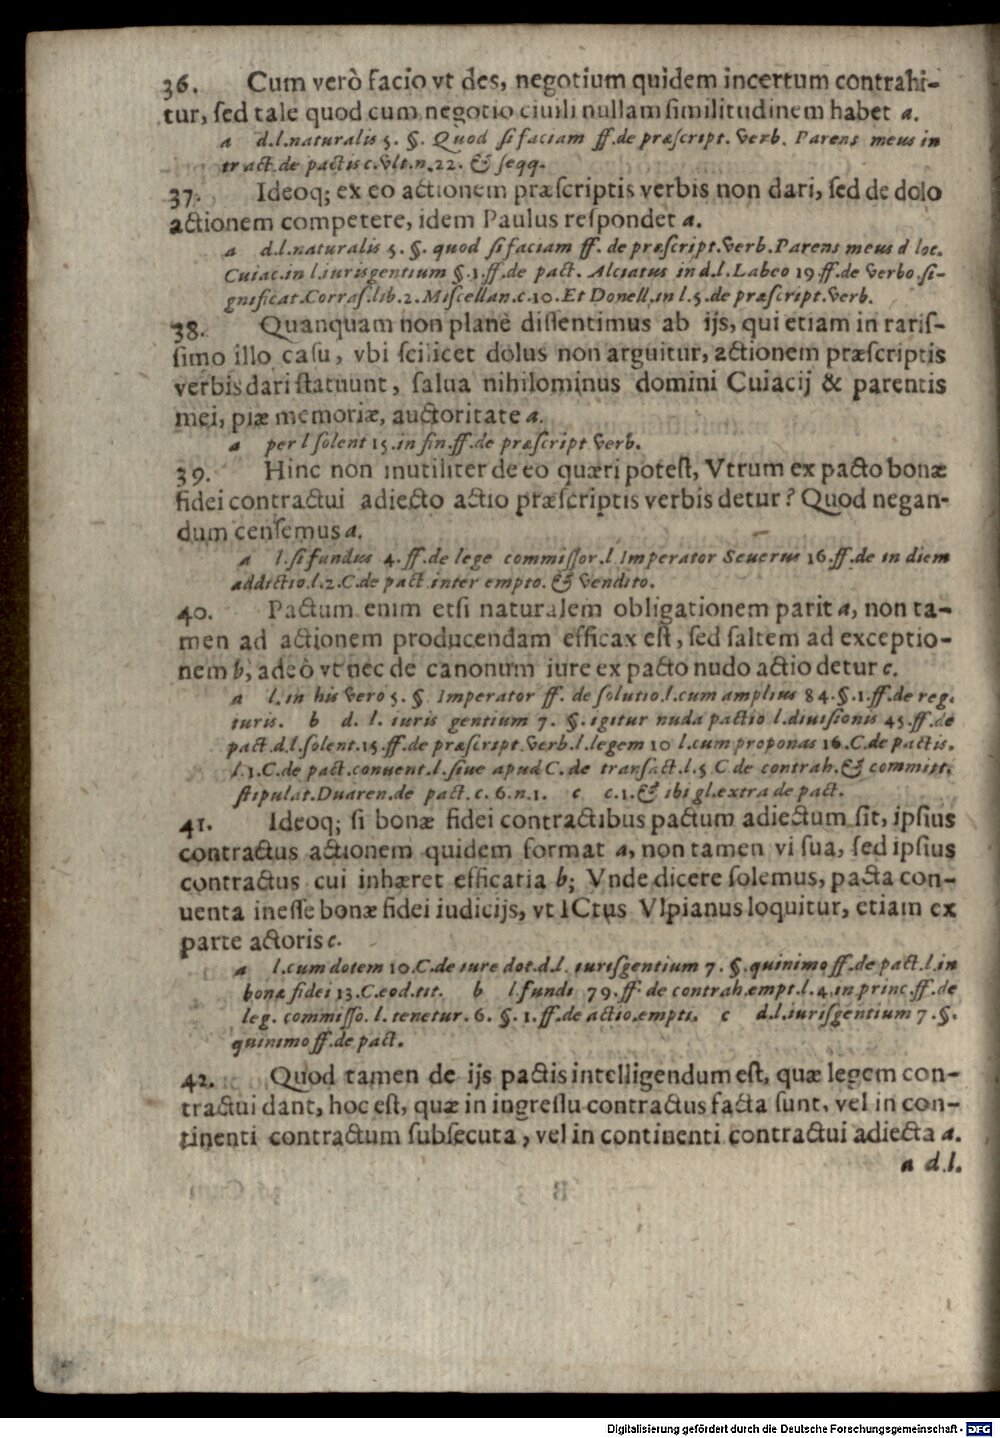 36. Cum verò facio vt des, negotium quidem incertum contrahi-
tur, sed tale quod cum negotio ciuili nullam similitudinem habet a.
a d.l.naturalis 5. §. Quod si faciam ff.de præscript. verb. Parens meus in
tract.de pactis c.vlt.n.22. & seqq.
37. Ideoq; ex eo actionem præscriptis verbis non dari, sed de dolo
actionem competere, idem Paulus respondet a.
a d.l.naturalis 5. §. quod si faciam ff. de præscript.verb. Parens meus d loc.
Cuiac.in l.iurisgentium §.1.ff.de pact. Alciatus in d.l.Labeo 19.ff.de verbo.si-
gnificat.Corras.lib.2.Miscellan.c.10. Et Donell.in l.5.de præscript.verb.
38. Quanquam non planè dissentimus ab ijs, qui etiam in raris-
simo illo casu, vbi scilicet dolus non arguitur, actionem præscriptis
verbis dari statuunt, salua nihilominus domini Cuiacij & parentis
mei, piæ memoriæ, auctoritate a.
a per l solent 15.in fin.ff.de præscript verb.
39. Hinc non inutiliter de eo quæri potest, Vtrum ex pacto bonæ
fidei contractui adiecto actio præscriptis verbis detur? Quod negan-
dum censemus a.
a l.si fundus 4.ff.de lege commissor.l Imperator Seuerus 16.ff.de in diem
addictio.l.2.C.de pact inter empto. & vendito.
40. Pactum enim etsi naturalem obligationem parit a, non ta-
men ad actionem producendam efficax est, sed saltem ad exceptio-
nem b, adeò vt nec de canonum iure ex pacto nudo actio detur c.
a l. in his vero 5. § Imperator ff. de solutio.l.cum amplius 84.§.1.ff.de reg.
iuris. b d. l. iuris gentium 7. §.igitur nuda pactio l.diuisionis 45.ff.de
pact.d.l.solent.15.ff.de præscript.verb.l.legem 10 l.cum proponas 16.C.de pactis.
l.1.C.de pact.conuent.l.siue apud C. de transact.l.5 C de contrah.& committ.
stipulat.Duaren.de pact. c. 6.n.1. c c.1.& ibi gl.extra de pact.
41. Ideoq; si bonæ fidei contractibus pactum adiectum sit, ipsius
contractus actionem quidem format a, non tamen vi sua, sed ipsius
contractus cui inhæret efficatia b; Vnde dicere solemus, pacta con-
uenta inesse bonæ fidei iudicijs, vt ICtus Vlpianus loquitur, etiam ex
parte actoris c.
a l.cum dotem 10.C.de iure dot.d.l. iurisgentium 7. §.quinimo ff.de pact.l.in
bonæ fidei 13.C.eod.tit. b l.fundi 79.ff. de contrah.empt.l.4.in princ.ff.de
leg. commisso. l. tenetur. 6. §. 1.ff.de actio.empti. c d.l.iurisgentium 7.§.
quinimo ff.de pact.
42. Quod tamen de ijs pactis intelligendum est, quæ legem con-
tractui dant, hoc est, quæ in ingressu contractus facta sunt, vel in con-
tinenti contractum subsecuta, vel in continenti contractui adiecta a.
a d.l.
Digitalisierung gefördert durch die Deutsche Forschungsgemeinschaft - DFG